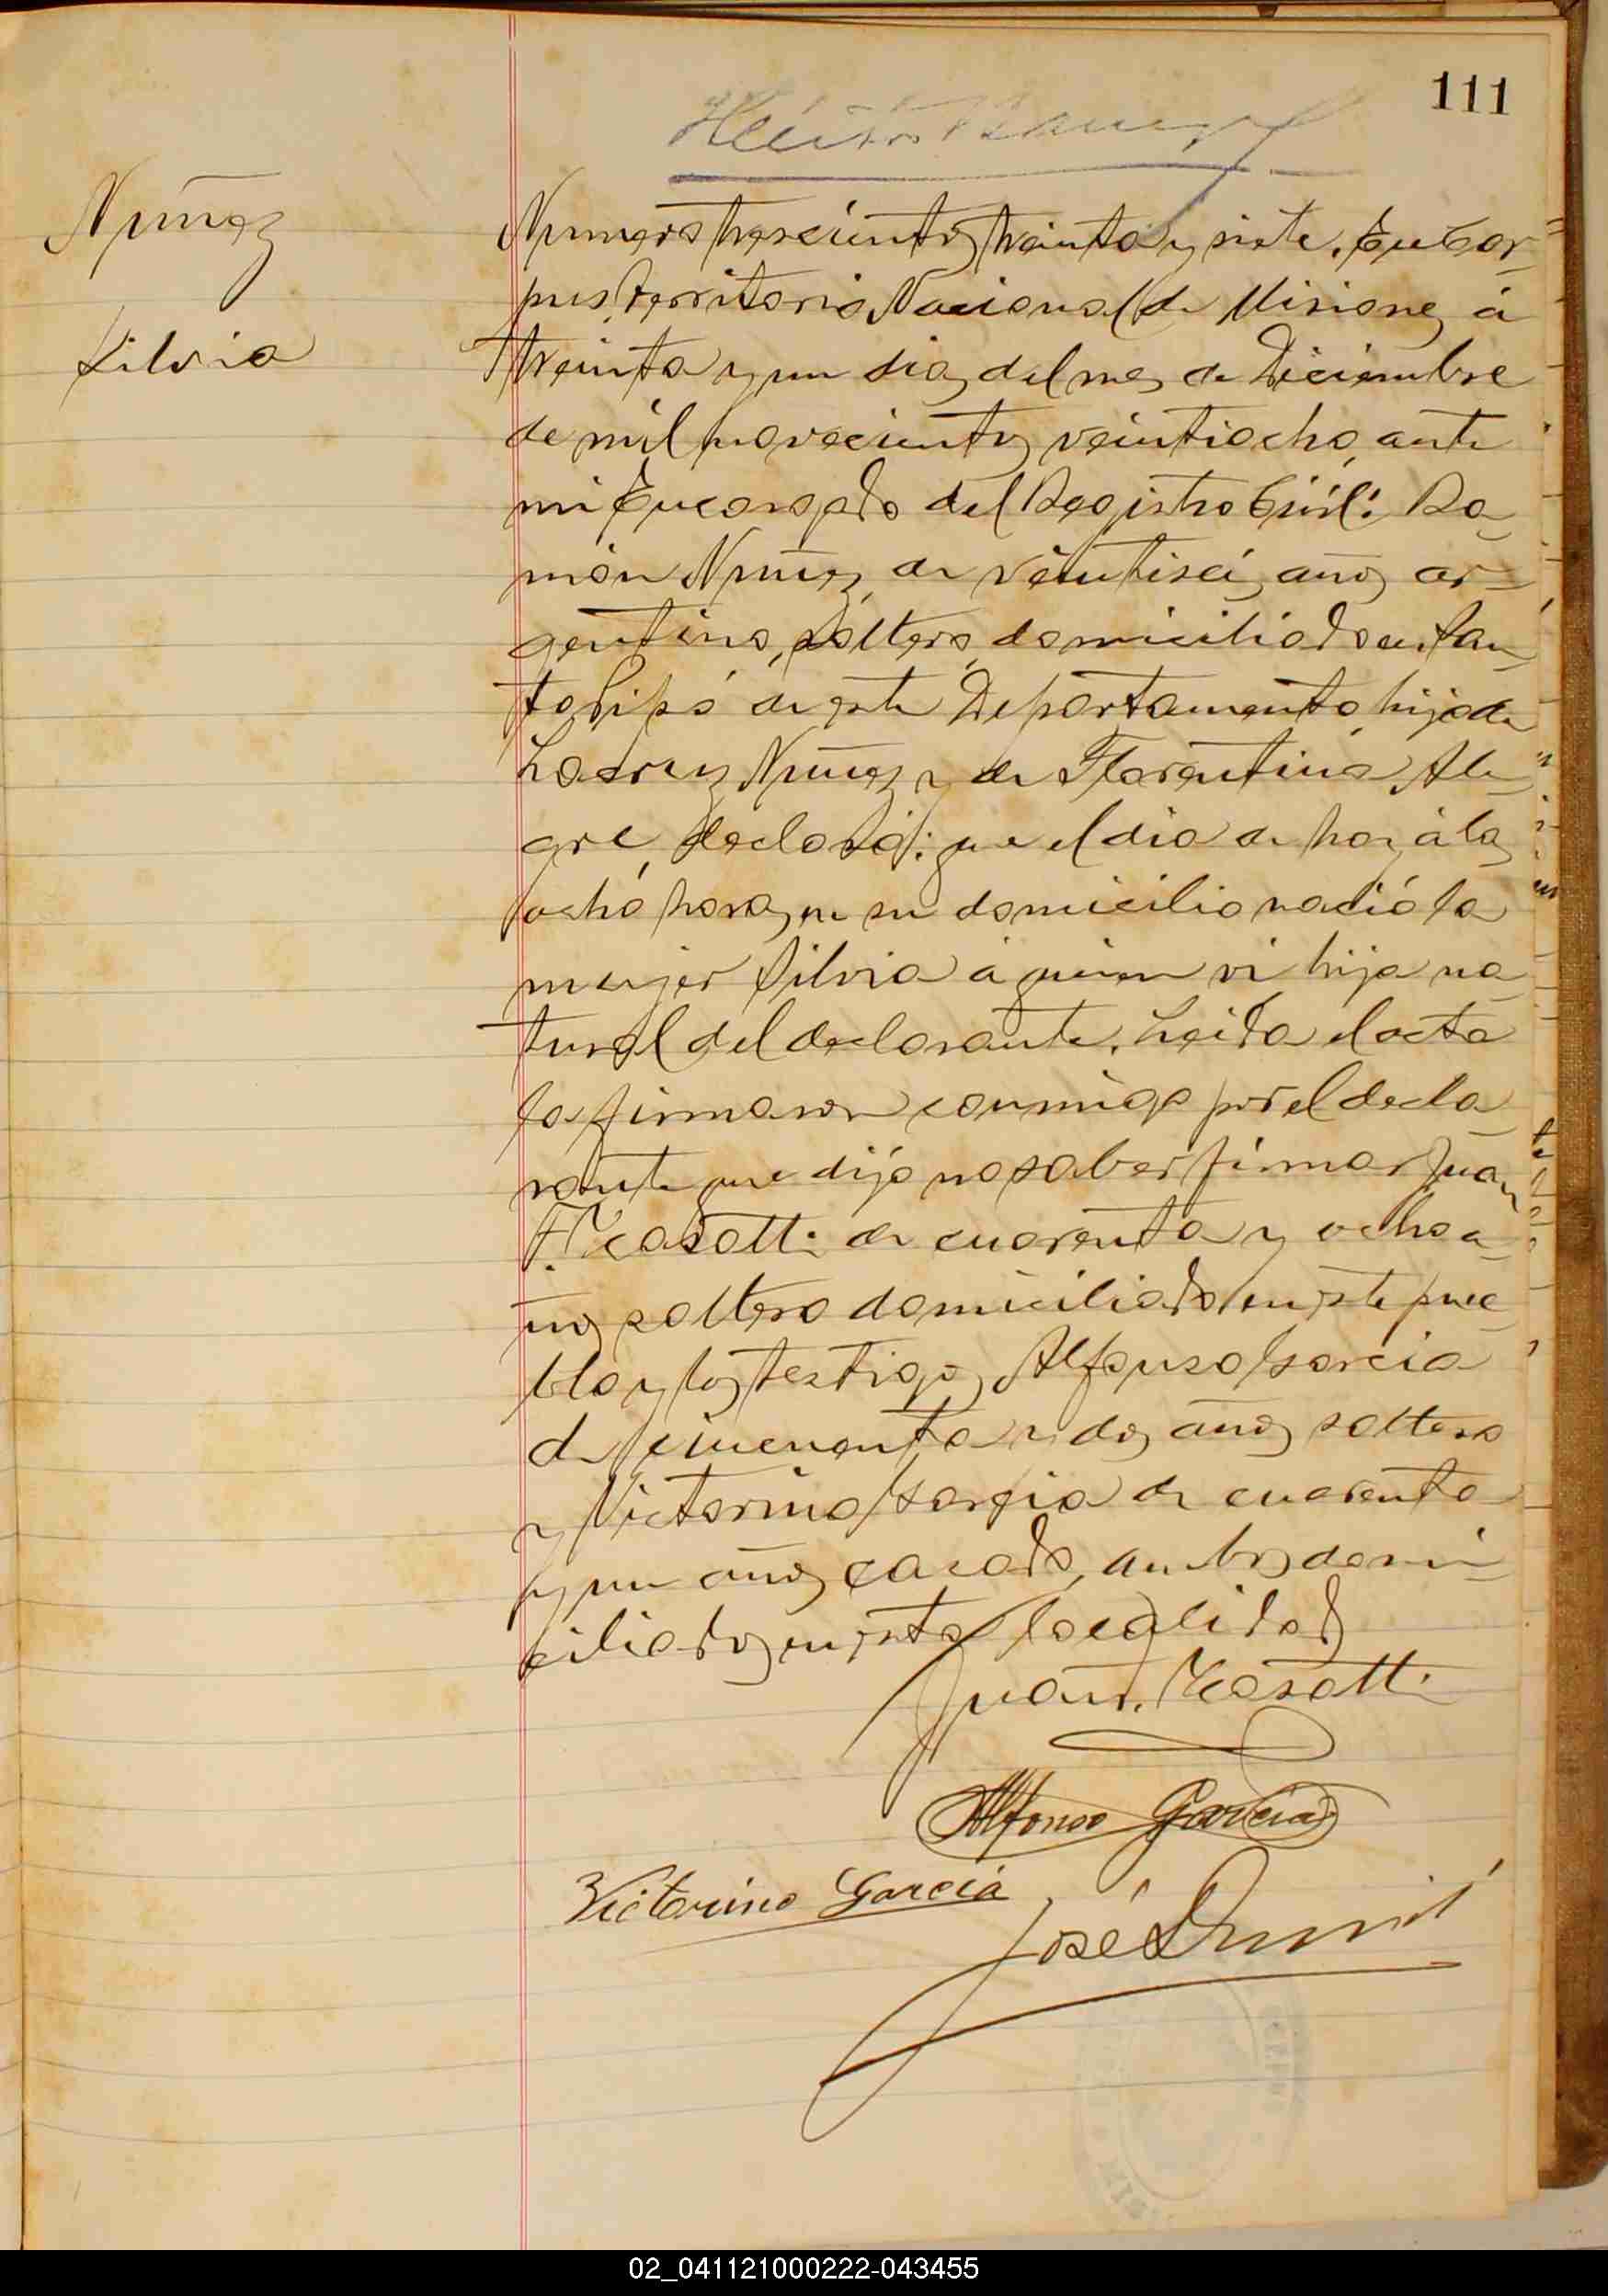 111
Nuñez
Silvia
Numero trescientos treinta y siete. En Cor-
pus, Territorio Nacional de Misiones á
treinta y un dias del mes de Diciembre
de mil novecientos veintiocho, ante
mi Encargado del Registro Civil: Ra-
món Nuñez, de veintiseis años ar-
gentino, soltero, domiciliado en San-
to Pipó de este Departamento, hijo de
Nuñez y de Florentina Ale-
gre, declaró: que el dia de hoy á las
ocho horas, en su domicilio nació la
mujer Silvia á quien vi hija na-
tural del declarante. Leida el acta
la firmaron conmigo por el decla-
rante que dijo no saber firmar Juan
F. Casotti de cuarenta y ocho a-
ños soltero domiciliado en este pue-
blo y los testigos Alfonso Garcia
de cincuenta y dos años soltero
y Victorino Garcia de cuarenta
y un años casado, ambos domi-
ciliados en esta localidad
Juan F. Casotti
Alfonso Garcia
Victorino Garcia
José
02_041121000222-043455